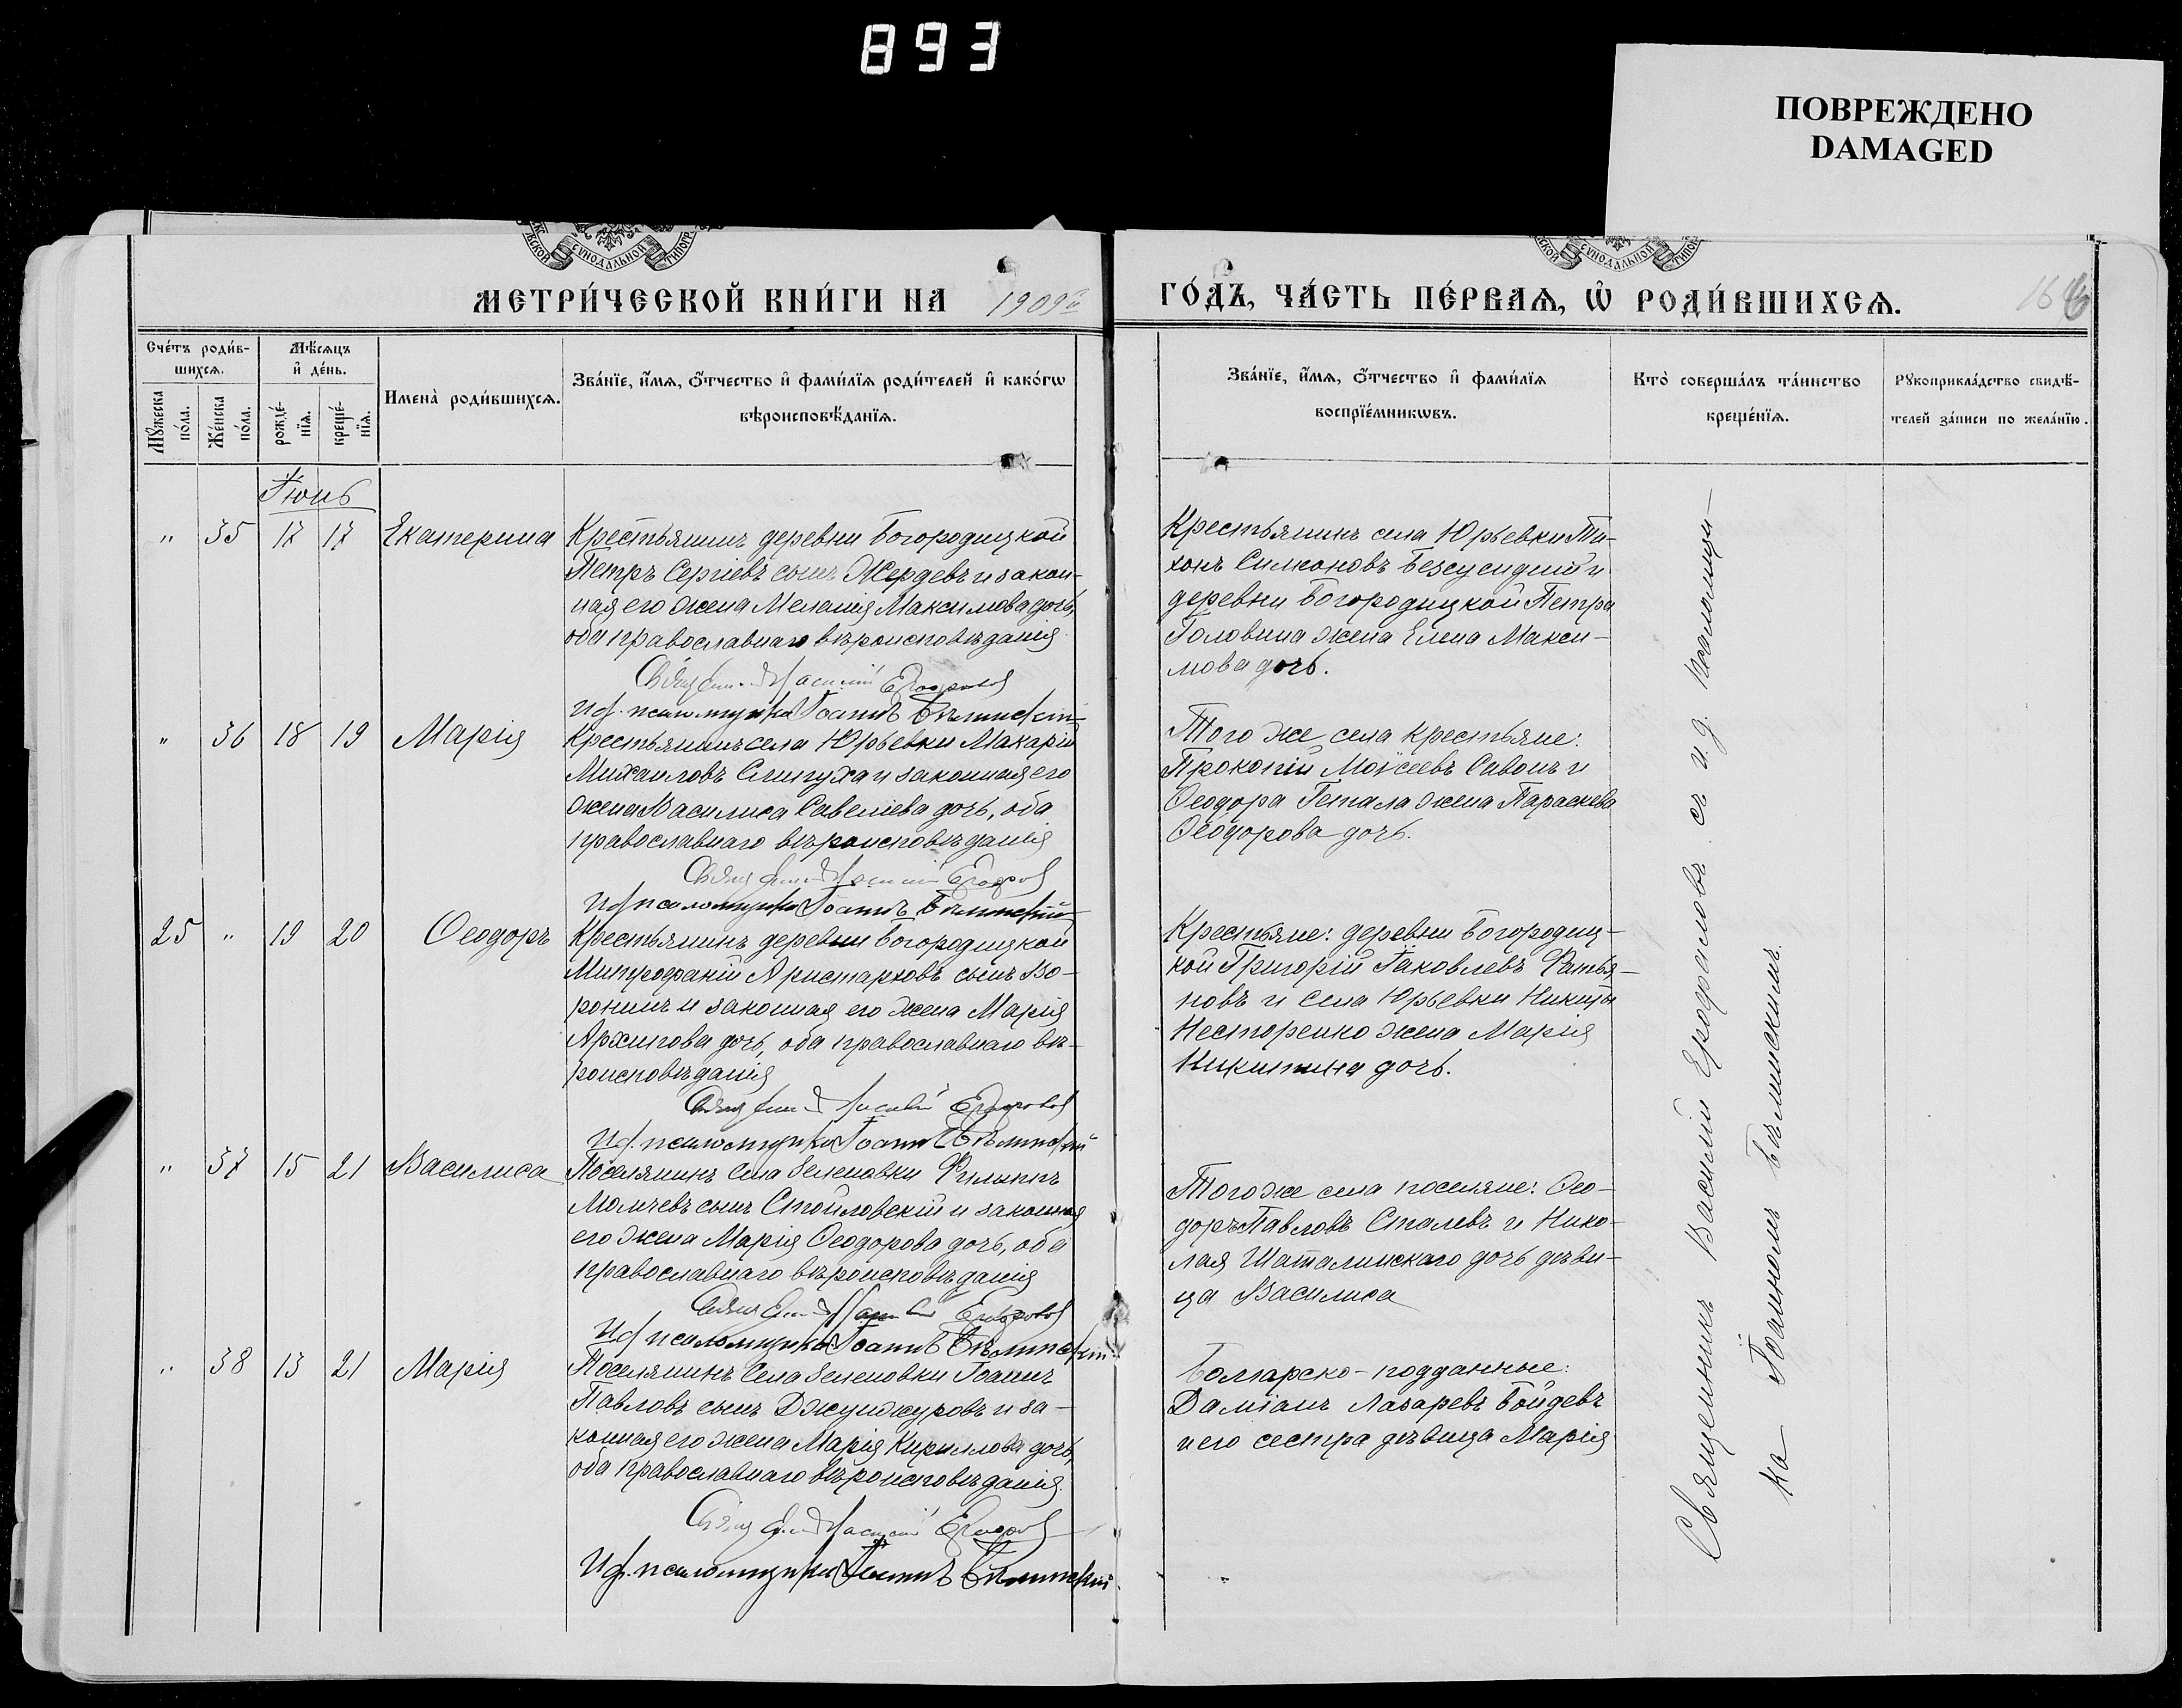 893
ПОВРЕЖДЕНО
DAMAGED
СУНОДАЛЬНОЙ
СУНОДАЛЬНОЙ
МЕТРИ́ЧЕСКОЙ КНИ́ГИ НА 1909й
ГО́ДЪ, ЧА́СТЬ ПЕ́РВАѦ, Ѡ҆ РОДИ́ВШИХСѦ.
Сче́тъ роди́в-
шихсѧ.
Мꙋжеска
по́ла.
Же́нска
по́ла.
Мѣ́сѧцъ
и҆ де́нь.
рожде́-
нїѧ.
креще́-
нїѧ.
Имена̀ роди́вшихсѧ.
Зва́нїе, и҆́мѧ, ѻ҆́тчество и҆ фами́лїѧ роди́телей и҆ како́гѡ
вѣроисповѣ́данїѧ.
Зва́нїе, и҆́мѧ, ѻ҆́тчество и҆ фами́лїѧ
воспрїе́мникѡвъ.
Кто̀ соверша́лъ та́инство
креще́нїѧ.
Рꙋкоприкла́дство свидѣ́-
телей за́писи по жела́нїю.
Іюнь
" 35 17 17 Екатерина
Крестьянинъ деревни Богородицкой
Петръ Сергіевъ сынъ Жердевъ и закон-
ная его жена Меланія Максимова дочь,
оба православнаго вѣроисповѣданія
Священникъ Василій Ерофаловъ
И д. псаломщика Іоаннъ Бѣлинскій
Крестьянинъ села Юрьевки Ти-
хонъ Симоновъ и
деревни Богородицкой Петра
Головина жена Елена Макси-
мова дочь.
" 36 18 19 Марія
Крестьянинъ села Юрьевки Макарій
Михаиловъ Слипуха и законная его
жена Василиса Савеліева дочь, оба
православнаго вѣроисповѣданія
Священникъ Василій Ерофаловъ
И д псаломщика Іоаннъ Бѣлинскій
Того же села крестьяне:
Прокопій Моѵсеевъ Савонъ и
Ѳеодора Гетала жена Параскева
Ѳеодорова дочь.
25 " 19 20 Ѳеодоръ
Крестьянинъ деревни Богородицкой
Митрофаній Аристарховъ сынъ Во-
ронинъ и законная его жена Марія
Архипова дочь, оба православнаго вѣ-
роисповѣданія
Священникъ Василій Ерофаловъ
И д. псаломщика Іоаннъ Бѣлинскій
Крестьяне: деревни Богородиц-
кой Григорій Іаковлевъ Фатья-
новъ и села Юрьевки Никиты
Несторенко жена Марія
Никитина дочь.
" 37 15 21 Василиса
Поселянинъ села Зеленовки Филиппъ
сынъ Стойловскій и законная
его жена Марія Ѳеодорова дочь, оба
православнаго вѣроисповѣданія
Священникъ Василій Ерофаловъ
И д псаломщика Іоаннъ Бѣлинскій
Того же села поселяне: Ѳео-
доръ Павловъ Сталевъ и Нико-
лая Шаталинскаго дочь дѣви-
ца Василиса
" 38 13 21 Марія
Поселянинъ села Зеленовки Іоаннъ
Павловъ сынъ Джунжуровъ и за-
конная его жена Марія Кириллова дочь,
оба православнаго вѣроисповѣданія.
Священникъ Василій Ерофаловъ
И д. псаломщика Іоаннъ Бѣлинскій
Болгарско-подданные:
Даміанъ Лазаревъ Бойдевъ
и его сестра дѣвица Марія
Священникъ Василій Ерофаловъ съ и. д. псаломщи-
ка Іоанномъ Бѣлинскимъ.